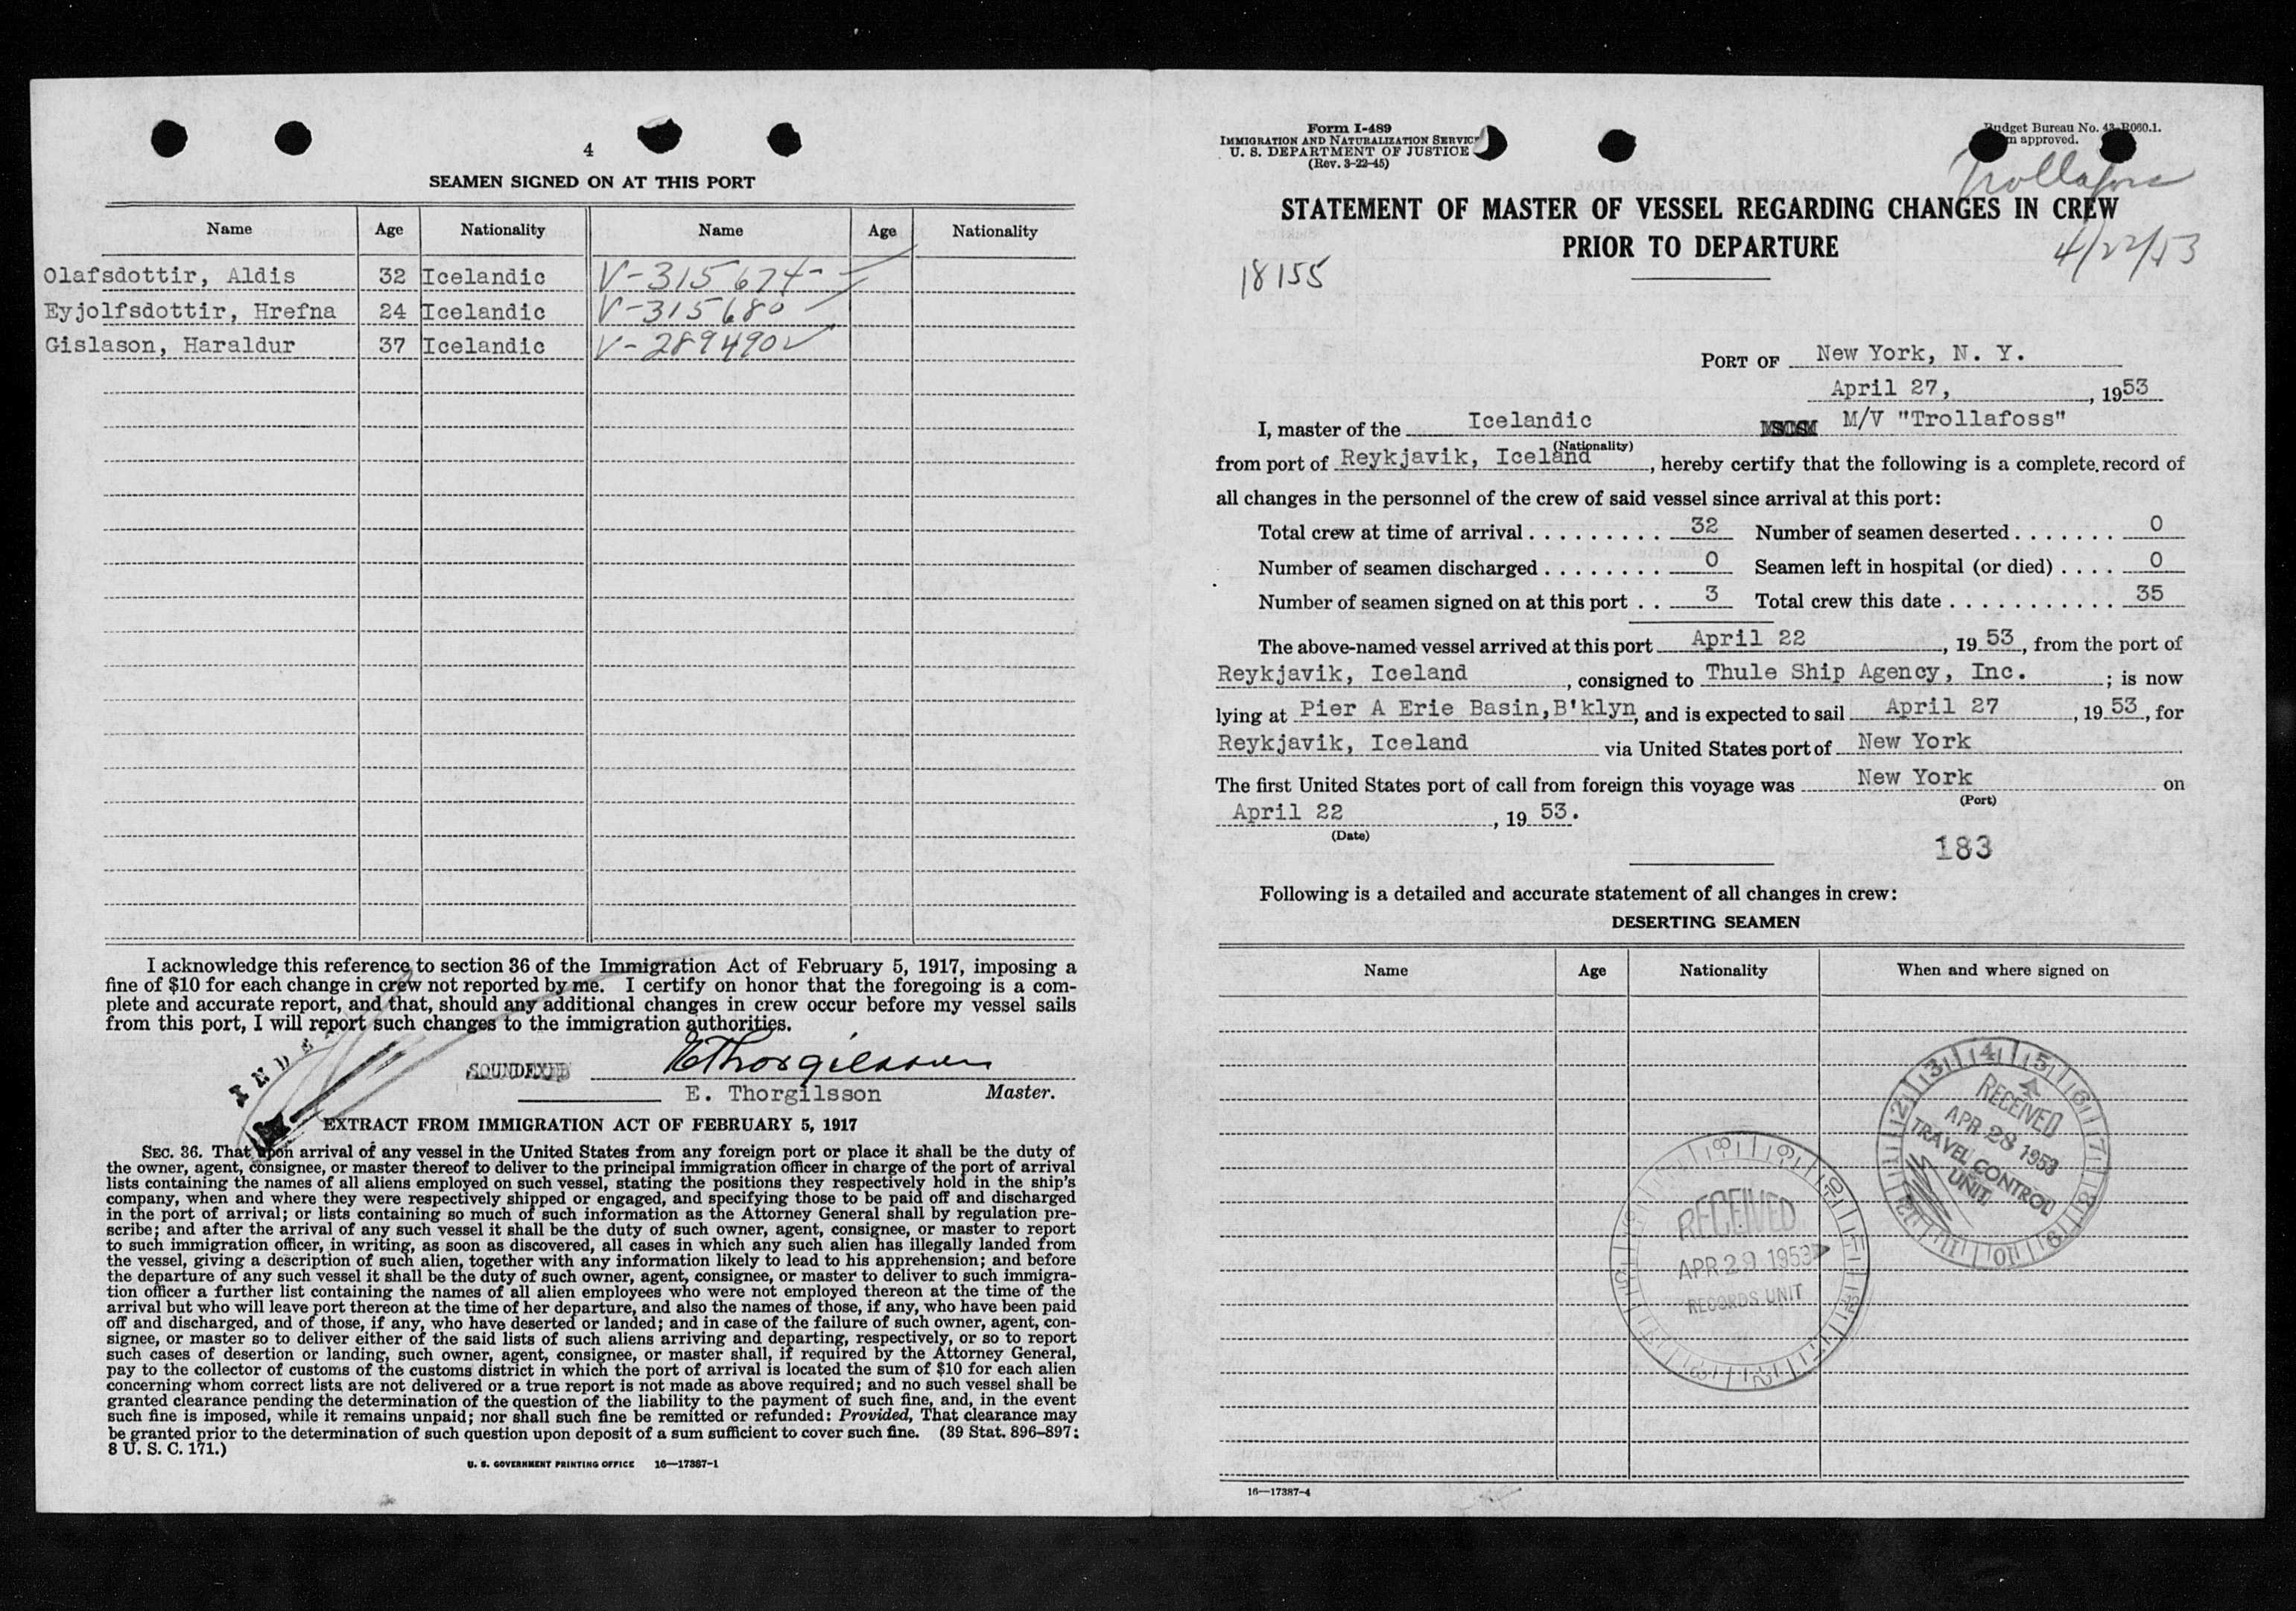 4
SEAMEN SIGNED ON AT THIS PORT
Name Age Nationality Name Age Nationality
Olafsdottir, Aldis 32 Icelandic V-315674-
Eyjolfsdottir, Hrefna 24 Icelandic V-315680
Gislason, Haraldur 37 Icelandic V-289490
I acknowledge this reference to section 36 of the Immigration Act of February 5, 1917, imposing a
fine of $10 for each change in crew not reported by me. I certify on honor that the foregoing is a com-
plete and accurate report, and that, should any additional changes in crew occur before my vessel sails
from this port, I will report such changes to the immigration authorities.
SOUNDEXED EThorgilsson
E. Thorgilsson Master.
EXTRACT FROM IMMIGRATION ACT OF FEBRUARY 5, 1917
SEC. 36. That upon arrival of any vessel in the United States from any foreign port or place it shall be the duty of
the owner, agent, consignee, or master thereof to deliver to the principal immigration officer in charge of the port of arrival
lists containing the names of all aliens employed on such vessel, stating the positions they respectively hold in the ship's
company, when and where they were respectively shipped or engaged, and specifying those to be paid off and discharged
in the port of arrival; or lists containing so much of such information as the Attorney General shall by regulation pre-
scribe; and after the arrival of any such vessel it shall be the duty of such owner, agent, consignee, or master to report
to such immigration officer, in writing, as soon as discovered, all cases in which any such alien has illegally landed from
the vessel, giving a description of such alien, together with any information likely to lead to his apprehension; and before
the departure of any such vessel it shall be the duty of such owner, agent, consignee, or master to deliver to such immigra-
tion officer a further list containing the names of all alien employees who were not employed thereon at the time of the
arrival but who will leave port thereon at the time of her departure, and also the names of those, if any, who have been paid
off and discharged, and of those, if any, who have deserted or landed; and in case of the failure of such owner, agent, con-
signee, or master so to deliver either of the said lists of such aliens arriving and departing, respectively, or so to report
such cases of desertion or landing, such owner, agent, consignee, or master shall, if required by the Attorney General,
pay to the collector of customs of the customs district in which the port of arrival is located the sum of $10 for each alien
concerning whom correct lists are not delivered or a true report is not made as above required; and no such vessel shall be
granted clearance pending the determination of the question of the liability to the payment of such fine, and, in the event
such fine is imposed, while it remains unpaid; nor shall such fine be remitted or refunded: Provided, That clearance may
be granted prior to the determination of such question upon deposit of a sum sufficient to cover such fine. (39 Stat. 896-897;
8 U. S. C. 171.)
U. S. GOVERNMENT PRINTING OFFICE 16—17387-1
Form I-489
IMMIGRATION AND NATURALIZATION SERVICE
U. S. DEPARTMENT OF JUSTICE
(Rev. 3-22-45)
Budget Bureau No. 43-R060.1.
approved.
Trollafoss
STATEMENT OF MASTER OF VESSEL REGARDING CHANGES IN CREW
PRIOR TO DEPARTURE
4/22/53
18155
PORT OF New York, N. Y.
April 27, , 1953
I, master of the Icelandic M/V "Trollafoss"
(Nationality)
from port of Reykjavik, Iceland, hereby certify that the following is a complete record of
all changes in the personnel of the crew of said vessel since arrival at this port:
Total crew at time of arrival . . . . . . . . . 32 Number of seamen deserted . . . . . . . 0
Number of seamen discharged . . . . . . . . 0 Seamen left in hospital (or died) . . . . 0
Number of seamen signed on at this port . . 3 Total crew this date . . . . . . . . . . . 35
The above-named vessel arrived at this port April 22, 19 53, from the port of
Reykjavik, Iceland, consigned to Thule Ship Agency, Inc. ; is now
lying at Pier A Erie Basin, B'klyn, and is expected to sail April 27, 19 53, for
Reykjavik, Iceland via United States port of New York
The first United States port of call from foreign this voyage was New York on
(Port)
April 22, 19 53.
(Date)
183
Following is a detailed and accurate statement of all changes in crew:
DESERTING SEAMEN
Name Age Nationality When and where signed on
RECEIVED
APR 28 1953
TRAVEL CONTROL
UNIT
RECEIVED
APR 29 1953
RECORDS UNIT
16—17387-4